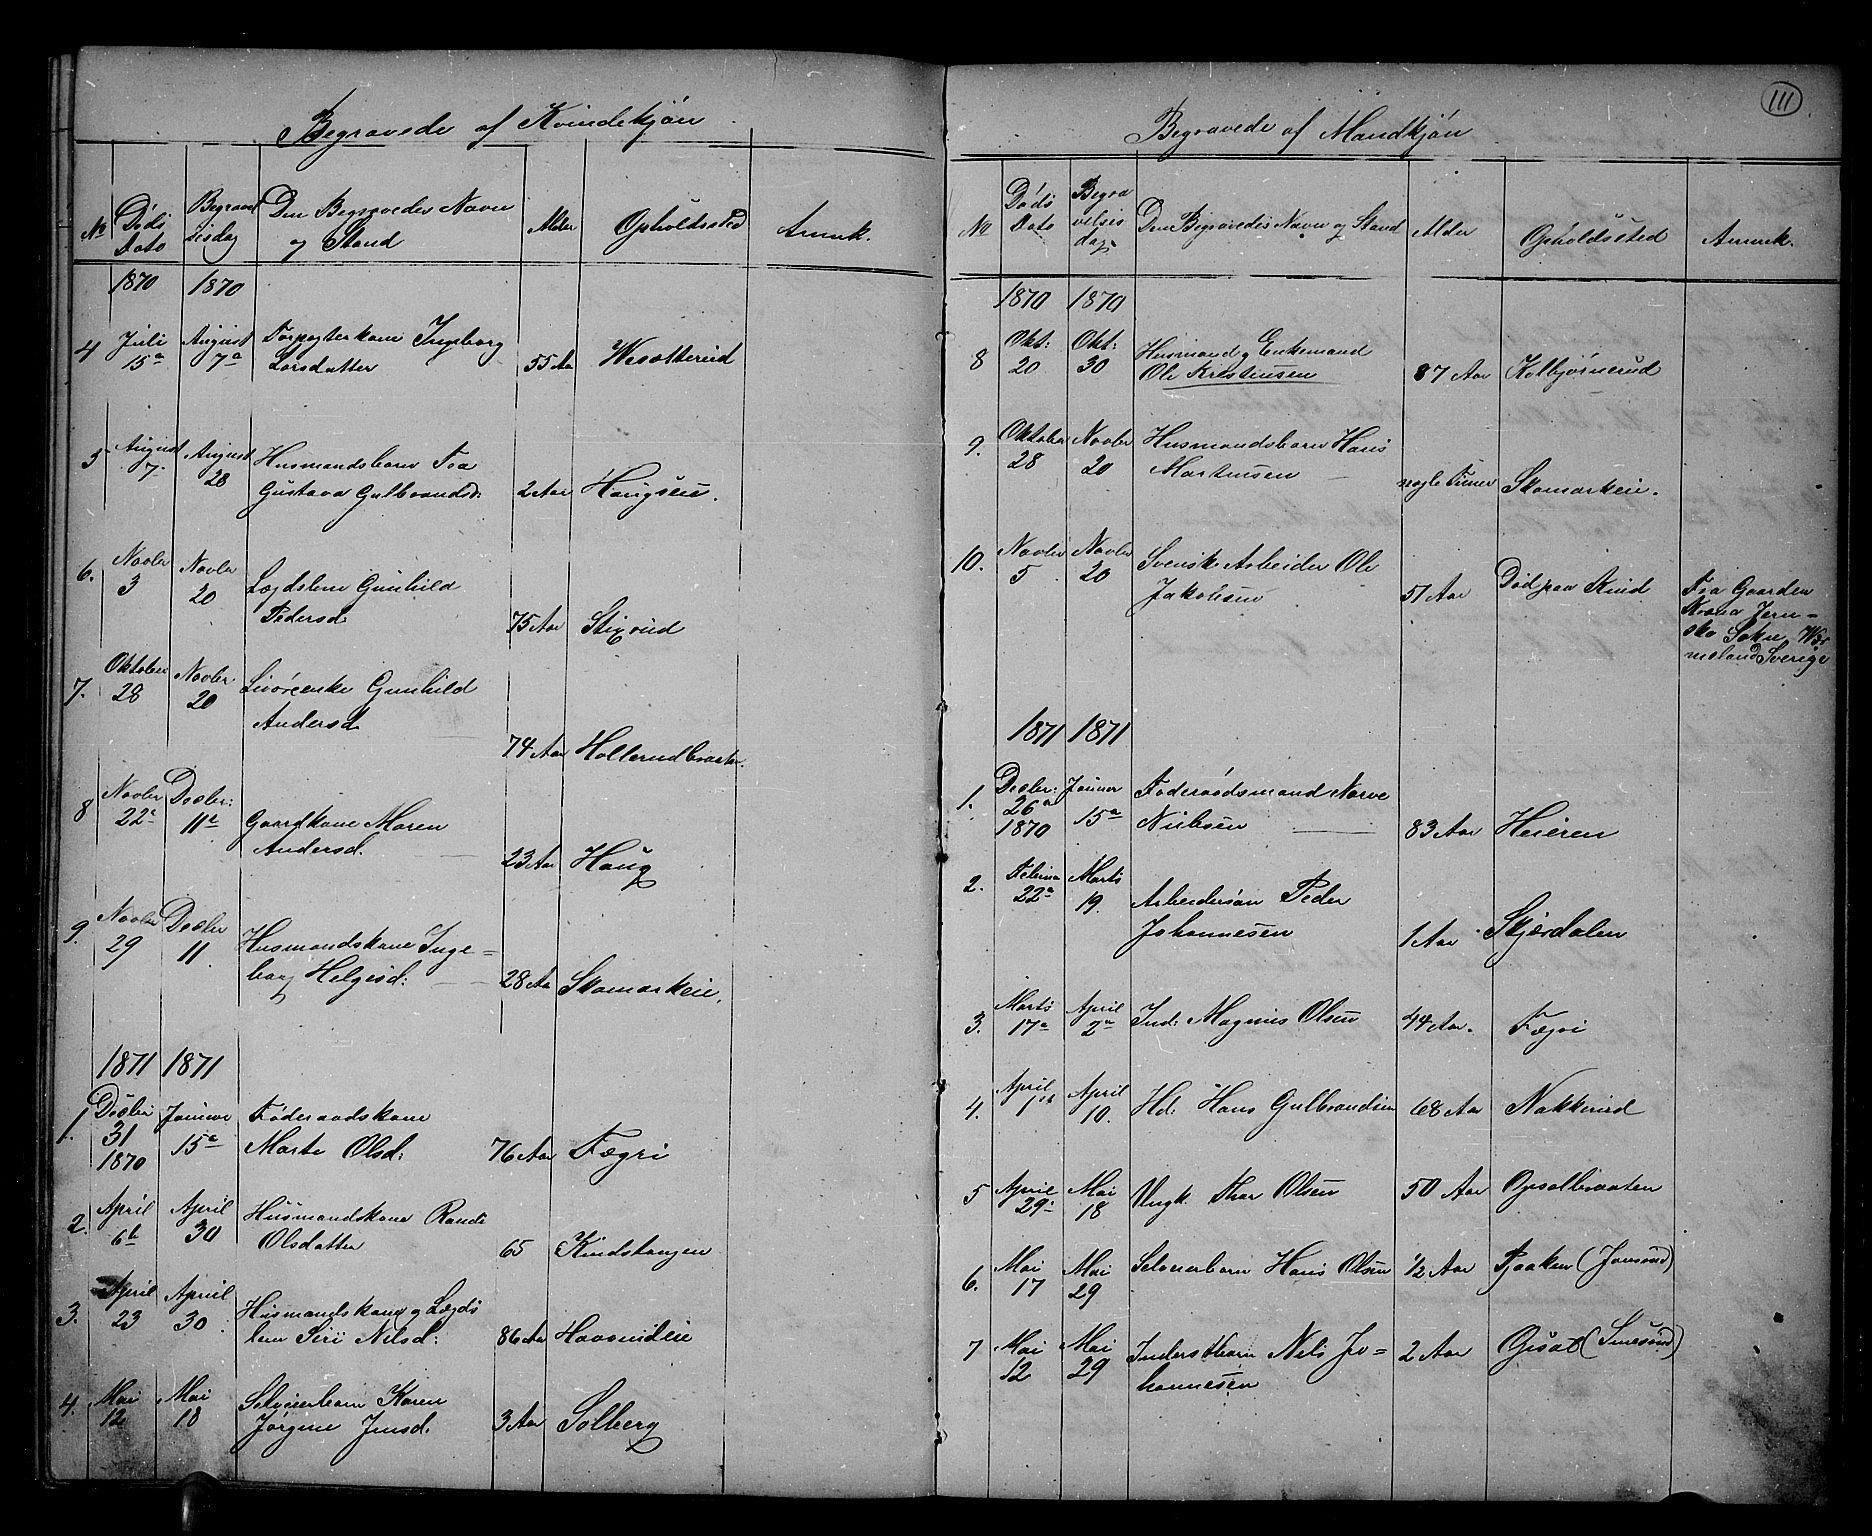 Begravede af Kvindekjøn
No
Døds Dato
Begravelsesdag
Den Begravedes Navn og Stand
Alder
Opholdssted
Anmrk.
1870 1870
4 Juli 15de August 7de Forpagterkone Ingeborg
Larsdatter 55 Aar
5 August 7. August 28 Husmandsbarn Fra
Gustava Gulbrandsd. 2 Aar Haugseie.
6. Novbr 3 Novbr 20 Lægdslem Gunhild
Pedersd. 75 Aar Stixrud
7. Oktober 28 Novbr 20 Gunhild
Andersd 74 Aar Hollerudbraaten
8 Novber 22de Decbr: 11te Gaardkone Maren
Andersd. 23 Aar Haug
9. Novbr 29 Decbr 11 Husmandskone Inge=
borg Helgesd: 28 Aar Skomarkeie.
1871 1871
1. Decbr 31 1870 Januar 15de Føderaadskone
Marte Olsd: 76 Aar Fægri
2. April 6te April 30 Husmandskone Randi
Olsdatter 65 Kindstangen
3. April 23 April 30 Husmandskone og Lægds
lem Siri Nilsd: 86 Aar
4. Mai 12 Mai 18 Selveierbarn Karen
Jørgine Jensd. 3 Aar Solberg
111
Begravede af Mandkjøn
No
Døds Dato
Begravelsesdag
Den Begravedes Navn og Stand
Alder
Opholdssted
Anmrk.
1870 1870
8 Okt: 20 Okt: 30 Husmand og Enkemand
Ole Kristensen 87 Aar Kolbjørnerud
9. Oktober 28 Novbr 20 Husmandsbarn Hans
Martinsen nogle Timer Skomarkeie.
10. Novbr 5 Novbr 20 Svensk Arbeider Ole
Jakobsen 51 Aar Død paa Kind Fra Gaarden
Jern=
sko Sokn, Wer
meland Sverige
1871 1871
1. Decbr: 26de 1870 Januar 15de Føderaadsmand Narve
Nielsen 83 Aar Heieren
2. Februar 22de Marts 19. Arbeidersøn Peder
Johannesen 1 Aar Skjærdalen
3. Marts 17de April 2den Ind: Magnus Olsen 44 Aar. Fægri
4. April 1ste April 10. Hd: Hans Gulbrandsen 68 Aar Nakkerud
5 April 29: Mai 18 Ungk Thor Olsen 50 Aar Opsalbraaten
6. Mai 17 Mai 29 Selveierbarn Hans Olsen 1/2 Aar Pjaaken (Jonsrud)
7 Mai 12 Mai 29 Inderstbarn Nils Jo=
hannesen 2 Aar